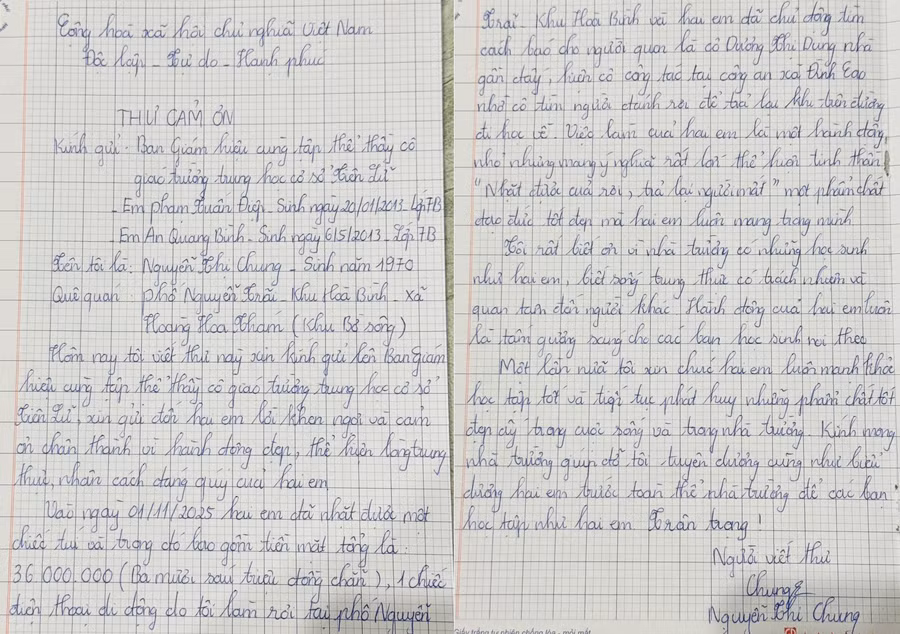 Cộng hoà xã hội chủ nghĩa Việt Nam
Độc lập - Tự do - Hạnh phúc
THƯ CẢM ƠN
Kính gửi: Ban Giám hiệu cùng tập thể thầy cô
giáo trường trung học cơ sở Tiên Lữ
- Em Phạm Xuân Diệp - Sinh ngày 20/01/2013 - Lớp 7B
- Em An Quang Bình - Sinh ngày 6/5/2013 - Lớp 7B
Tên tôi là: Nguyễn Thị Chung - Sinh năm 1970
Quê quán: Phố Nguyễn Trãi - Khu Hoà Bình - xã
Hoàng Hoa Thám (Khu Bờ sông)
Hôm nay tôi viết thư này xin kính gửi lên Ban Giám
hiệu cùng tập thể thầy cô giáo trường trung học cơ sở
Tiên Lữ, xin gửi đến hai em lời khen ngợi và cảm
ơn chân thành vì hành động đẹp, thể hiện lòng trung
thực, nhân cách đáng quý của hai em
Vào ngày 01/11/2025 hai em đã nhặt được một
chiếc túi và trong đó bao gồm tiền mặt tổng là:
36.000.000 (Ba mươi sáu triệu đồng chẵn), 1 chiếc
điện thoại di động do tôi làm rơi tại phố Nguyễn
Trãi - Khu Hoà Bình và hai em đã chủ động tìm
cách báo cho người quen là cô Dương Thị Dung nhà
gần đấy, hiện cô công tác tại công an xã Đình Cao
nhờ cô tìm người đánh rơi để trả lại khi trên đường
đi học về. Việc làm của hai em là một hành động
nhỏ nhưng mang ý nghĩa rất lớn thể hiện tinh thần
"Nhặt được của rơi, trả lại người mất" một phẩm chất
đạo đức tốt đẹp mà hai em luôn mang trong mình
Tôi rất biết ơn vì nhà trường có những học sinh
như hai em, biết sống trung thực có trách nhiệm và
quan tâm đến người khác. Hành động của hai em luôn
là tấm gương sáng cho các bạn học sinh noi theo
Một lần nữa tôi xin chúc hai em luôn mạnh khỏe
học tập tốt và tiếp tục phát huy những phẩm chất tốt
đẹp ấy trong cuộc sống và trong nhà trường. Kính mong
nhà trường giúp đỡ tôi tuyên dương cũng như biểu
dương hai em trước toàn thể nhà trường để các bạn
học tập như hai em Trân trọng!
Người viết thư
Chung
Nguyễn Thị Chung